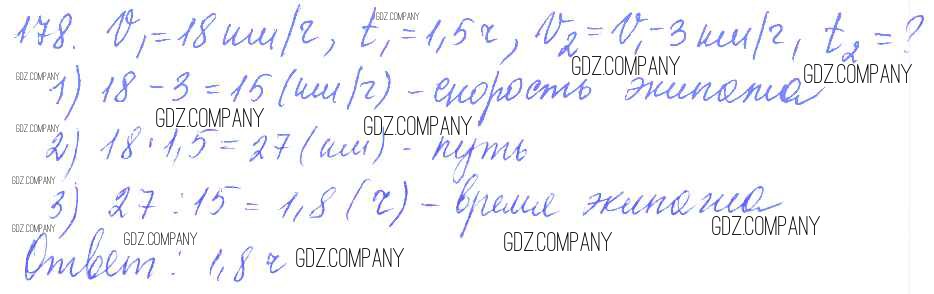 178. V₁=18 км/ч, t₁=1,5 ч, V₂=V₁-3 км/ч, t₂=?
1) 18-3=15 (км/ч) - скорость экипажа
2) 18·1,5=27 (км) - путь
3) 27:15=1,8 (ч) - время экипажа
Ответ: 1,8 ч
GDZ.COMPANY
GDZ.COMPANY
GDZ.COMPANY
GDZ.COMPANY
GDZ.COMPANY
GDZ.COMPANY
GDZ.COMPANY
GDZ.COMPANY
GDZ.COMPANY
GDZ.COMPANY
GDZ.COMPANY
GDZ.COMPANY
GDZ.COMPANY